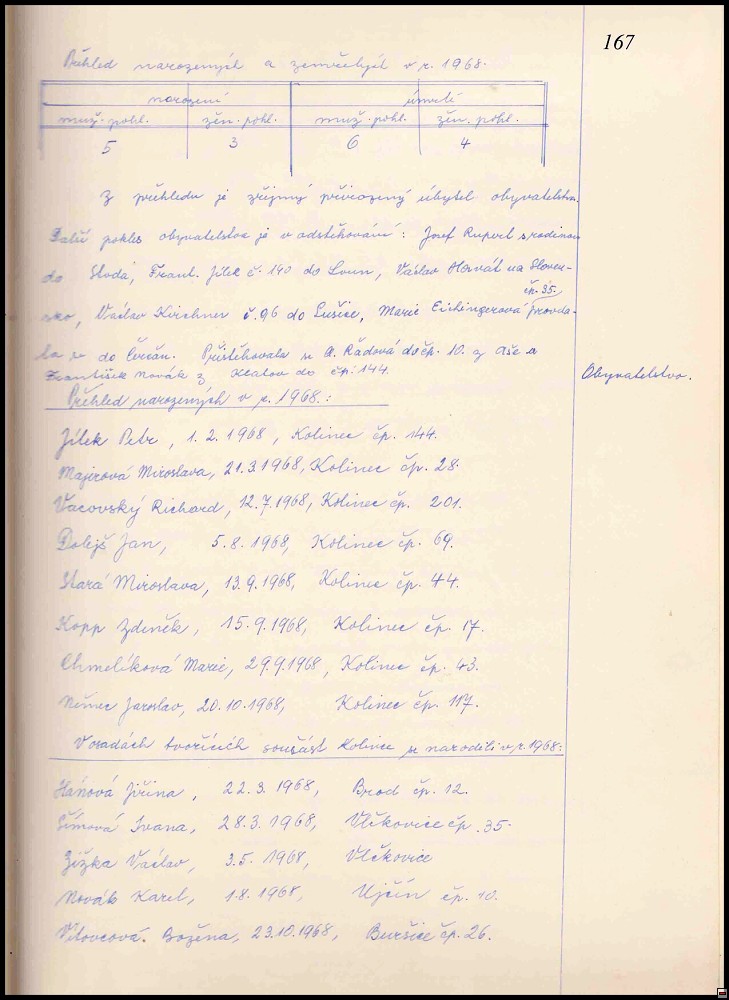 167
Přehled narozených a zemřelých v r. 1968.
narození úmrtí
muž. pohl. žen. pohl. muž. pohl. žen. pohl.
5 3 6 4
Z přehledu je zřejmý přirozený úbytek obyvatelstva.
Další pokles obyvatelstva je v odstěhování: Josef Rupert s rodinou
do Stodů, Frant. Jílek č. 140 do Loun, Václav Horvát na Sloven-
čp. 35.
sko, Václav Kirchner č. 96 do Sušice, Marie Eichingerová provda-
la se do Čerčan. Přistěhovala se A. Řádová do čp. 10. z Aše a
František Novák z Klatov do čp. 144.
Obyvatelstvo.
Přehled narozených v r. 1968.:
Jílek Petr, 1. 2. 1968, Kolinec čp. 144.
Majerová Miroslava, 21.3.1968, Kolinec čp. 28.
Vacovský Richard, 12.7.1968, Kolinec čp. 201.
Dolejš Jan, 5.8.1968, Kolinec čp. 69.
Stará Miroslava, 13.9.1968, Kolinec čp. 44.
Kopp Zdeněk, 15.9.1968, Kolinec čp. 17.
Chmelíková Marie, 29.9.1968, Kolinec čp. 43.
Němec Jaroslav, 20.10.1968, Kolinec čp. 117.
V osadách tvořících součást Kolince se narodili v r. 1968:
Hánová Jiřina, 22.3.1968, Brod čp. 12.
Šímová Ivana, 28.3.1968, Vlčkovice čp. 35.
Žižka Václav, 3.5.1968, Vlčkovice
Novák Karel, 1.8.1968, Ujčín čp. 10.
Vítovcová Božena, 23.10.1968, Buršice čp. 26.